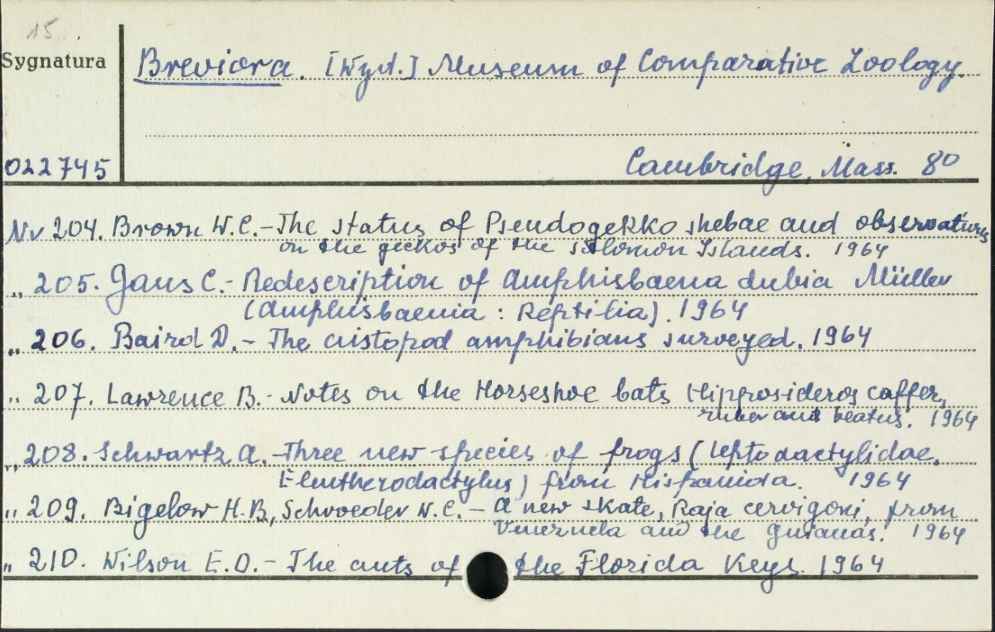 15.
Sygnatura
Breviora. [Wyd.] Museum of Comparative Zoology.
022745
Cambridge, Mass. 80
Nr 204. Brown W.C.-The status of Pseudogekko shebae and observations
on the geckos of the Solomon Islands. 1964
,, 205. Gans C.- Redescription of Amphisbaena dubia Müller
(Amphisbaenia : Reptilia). 1964
,, 206. Baird D.- The aistopod amphibians surveyed. 1964
,, 207. Lawrence B.- Notes on the Horseshoe bats Hipposideros caffer,
ruber and beatus. 1964
,, 208. Schwartz A.-Three new species of frogs (Leptodactylidae,
Eleutherodactylus) from Hispaniola. 1964
,, 209. Bigelow H.B., Schroeder W.C.- A new skate, Raja cervigoni, from
Venezuela and the Guianas. 1964
,, 210. Wilson E.O.- The ants of the Florida Keys. 1964